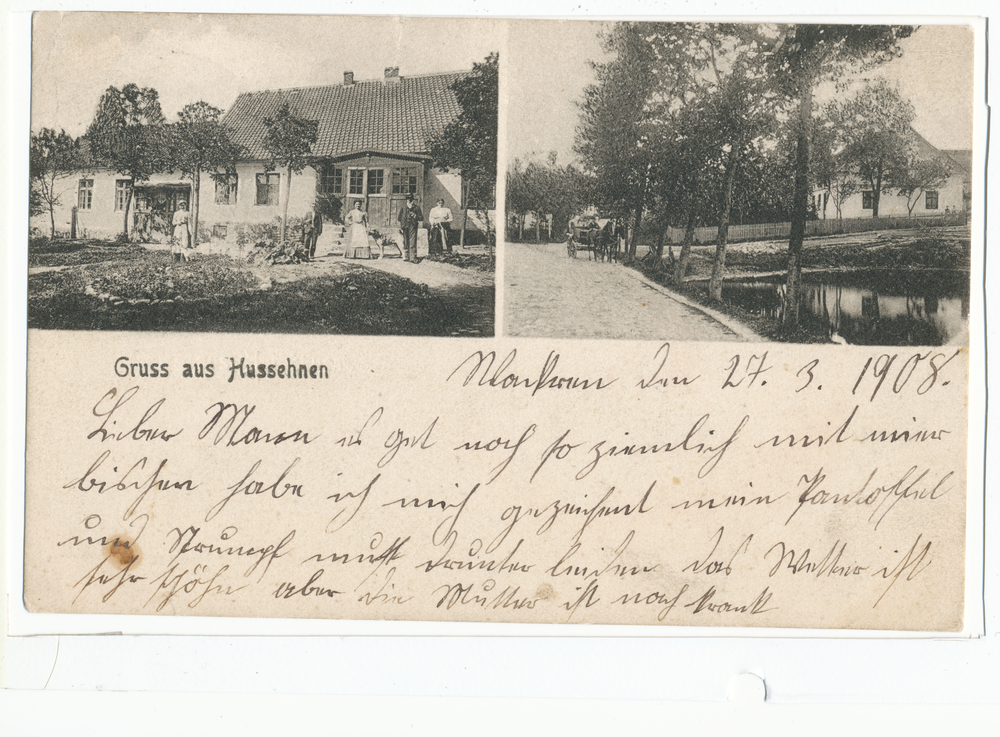 Gruss aus Hussehnen
Wackren den 27. 3. 1908.
Lieber Mann es get noch so ziemlich mit mier
bischen habe ich mich gezeichent mein Pantoffel
und Strumpf mußt drunter leiden das Wetter ist
sehr schöhn aber die Mutter ist noch krank